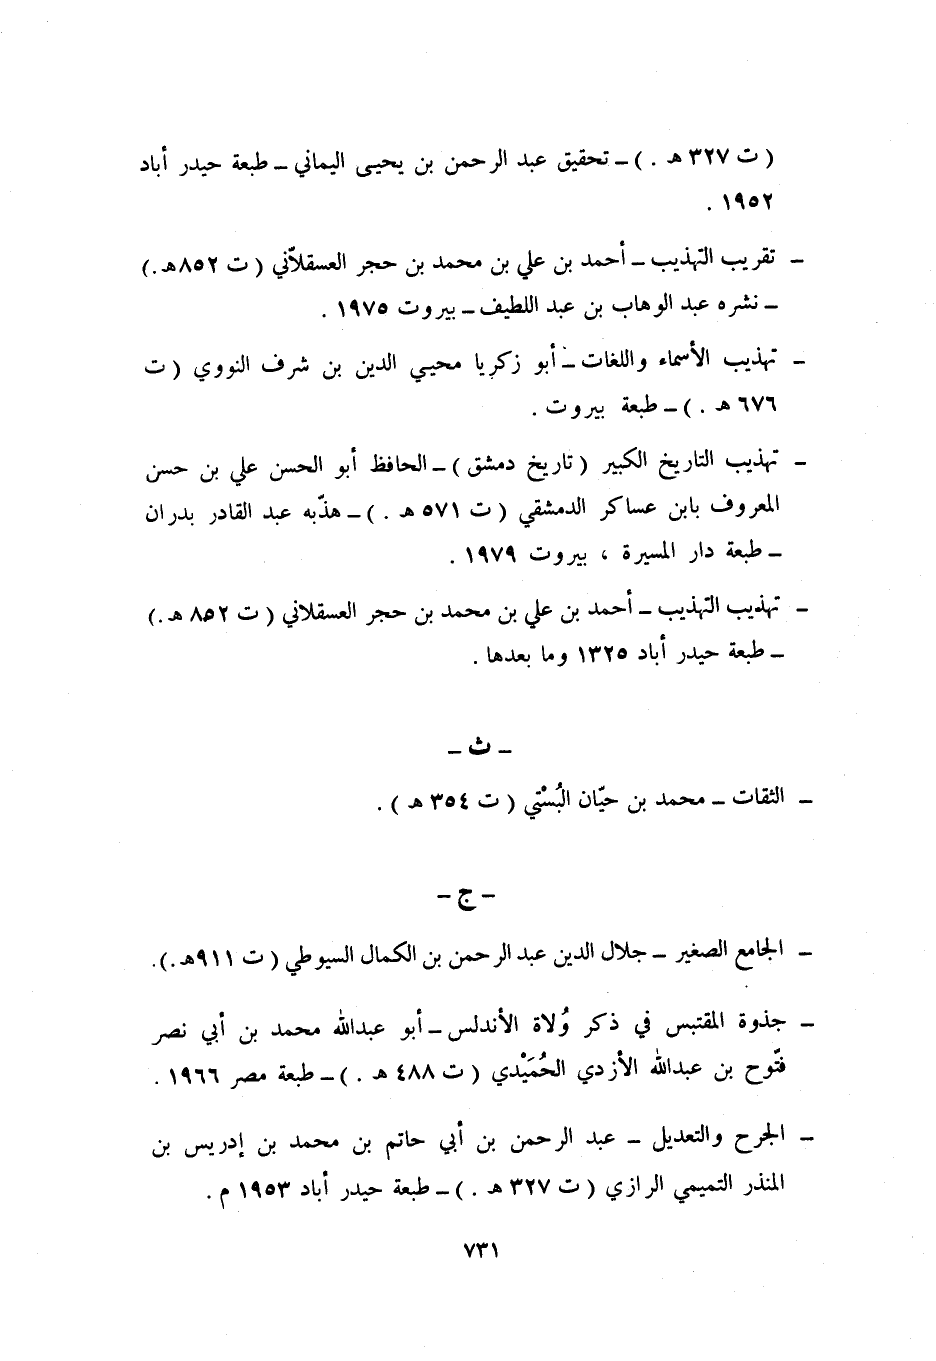 ( ت ٣٢٧ هـ . ) ــ تحقيق عبد الرحمن بن يحيى اليماني ــ طبعة حيدر أباد
١٩٥٢ .
ــ تقريب التهذيب ــ أحمد بن علي بن محمد بن حجر العسقلاّني ( ت ٨٥٢هـ .)
ــ نشره عبد الوهاب بن عبد اللطيف ــ بيروت ١٩٧٥ .
ــ تهذيب الأسماء واللغات ــ أبو زكريا محيي الدين بن شرف النووي ( ت
٦٧٦ هـ . ) ــ طبعة بيروت .
ــ تهذيب التاريخ الكبير ( تاريخ دمشق ) ــ الحافظ أبو الحسن علي بن حسن
المعروف بابن عساكر الدمشقي ( ت ٥٧١ هـ . ) ــ هذّبه عبد القادر بدران
ــ طبعة دار المسيرة ، بيروت ١٩٧٩ .
ــ تهذيب التهذيب ــ أحمد بن علي بن محمد بن حجر العسقلاني ( ت ٨٥٢ هـ .)
ــ طبعة حيدر أباد ١٣٢٥ وما بعدها .
ــ ث ــ
ــ الثقات ــ محمد بن حيّان البُسْتي ( ت ٣٥٤ هـ ) .
ــ ج ــ
ــ الجامع الصغير ــ جلال الدين عبد الرحمن بن الكمال السيوطي ( ت ٩١١هـ .) .
ــ جذوة المقتبس في ذكر وُلاة الأندلس ــ أبو عبدالله محمد بن أبي نصر
فتّوح بن عبدالله الأزدي الحُمَيْدي ( ت ٤٨٨ هـ . ) ــ طبعة مصر ١٩٦٦ .
ــ الجرح والتعديل ــ عبد الرحمن بن أبي حاتم بن محمد بن إدريس بن
المنذر التميمي الرازي ( ت ٣٢٧ هـ . ) ــ طبعة حيدر أباد ١٩٥٣ م .
٧٣١